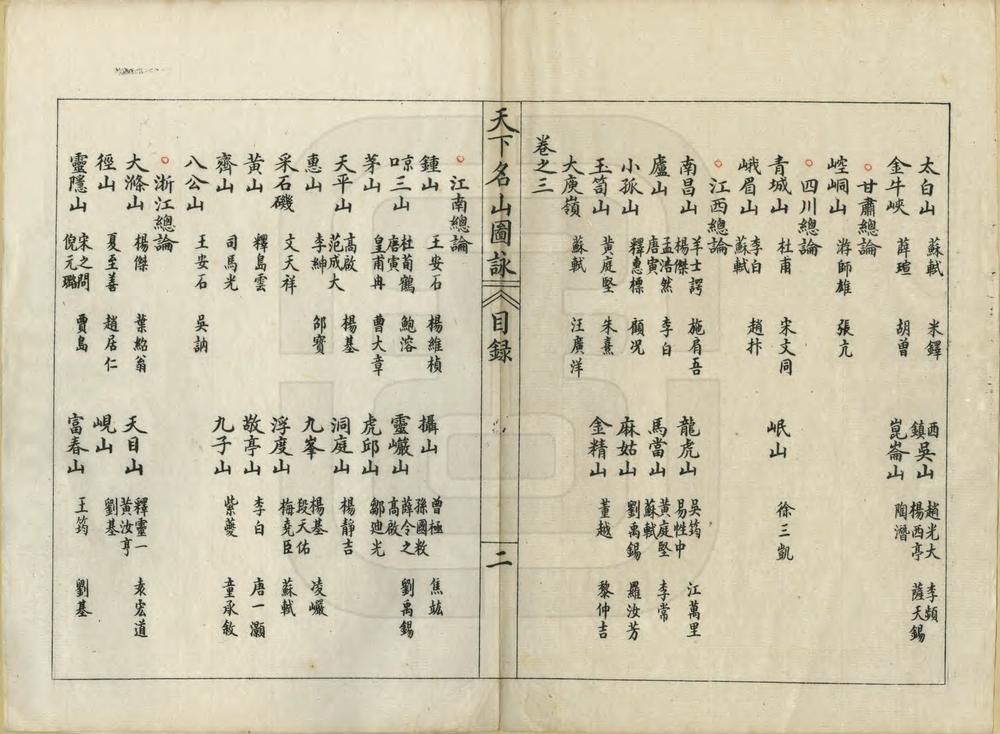 太白山 蘇軾 米鐸 西鎮吳山 趙光大 楊西亭 李頻
金牛峽 薛瑄 胡曾 崑崙山 陶潛 薩天錫
甘肅總論
崆峒山 游師雄 張亢
四川總論
青城山 杜甫 宋文同 岷山 徐三凱
峨眉山 李白 蘇軾 趙抃
江西總論
南昌山 羊士諤 楊傑 施肩吾 龍虎山 吳筠 易性中 江萬里
廬山 孟浩然 唐寅 李白 馬當山 黃庭堅 蘇軾 李常
小孤山 釋惠標 顧況 麻姑山 劉禹錫 羅汝芳
玉笥山 黃庭堅 朱熹 金精山 董越 黎仲吉
大庾嶺 蘇軾 汪廣洋
卷之三
天下名山圖詠 目録 二
江南總論
鍾山 王安石 楊維楨 攝山 曾極 孫國敉 焦竑
京口三山 杜荀鶴 唐寅 鮑溶 靈巖山 薛令之 高啟 劉禹錫
茅山 皇甫冉 曹大章 虎邱山 鄒迪光
天平山 高啟 范成大 楊基 洞庭山 楊靜吉
惠山 李紳 邵寶 九峯 楊基 段天佑 凌巖
采石磯 文天祥 浮度山 梅堯臣 蘇軾
黃山 釋島雲 敬亭山 李白 唐一灝
齊山 司馬光 九子山 紫蘷 童承敘
八公山 王安石 吳訥
浙江總論
大滌山 楊傑 葉紹翁 天目山 釋靈一 黃汝亨 袁宏道
徑山 夏至善 趙居仁 峴山 劉基
靈隱山 宋之問 倪元璐 賈島 富春山 王筠 劉基